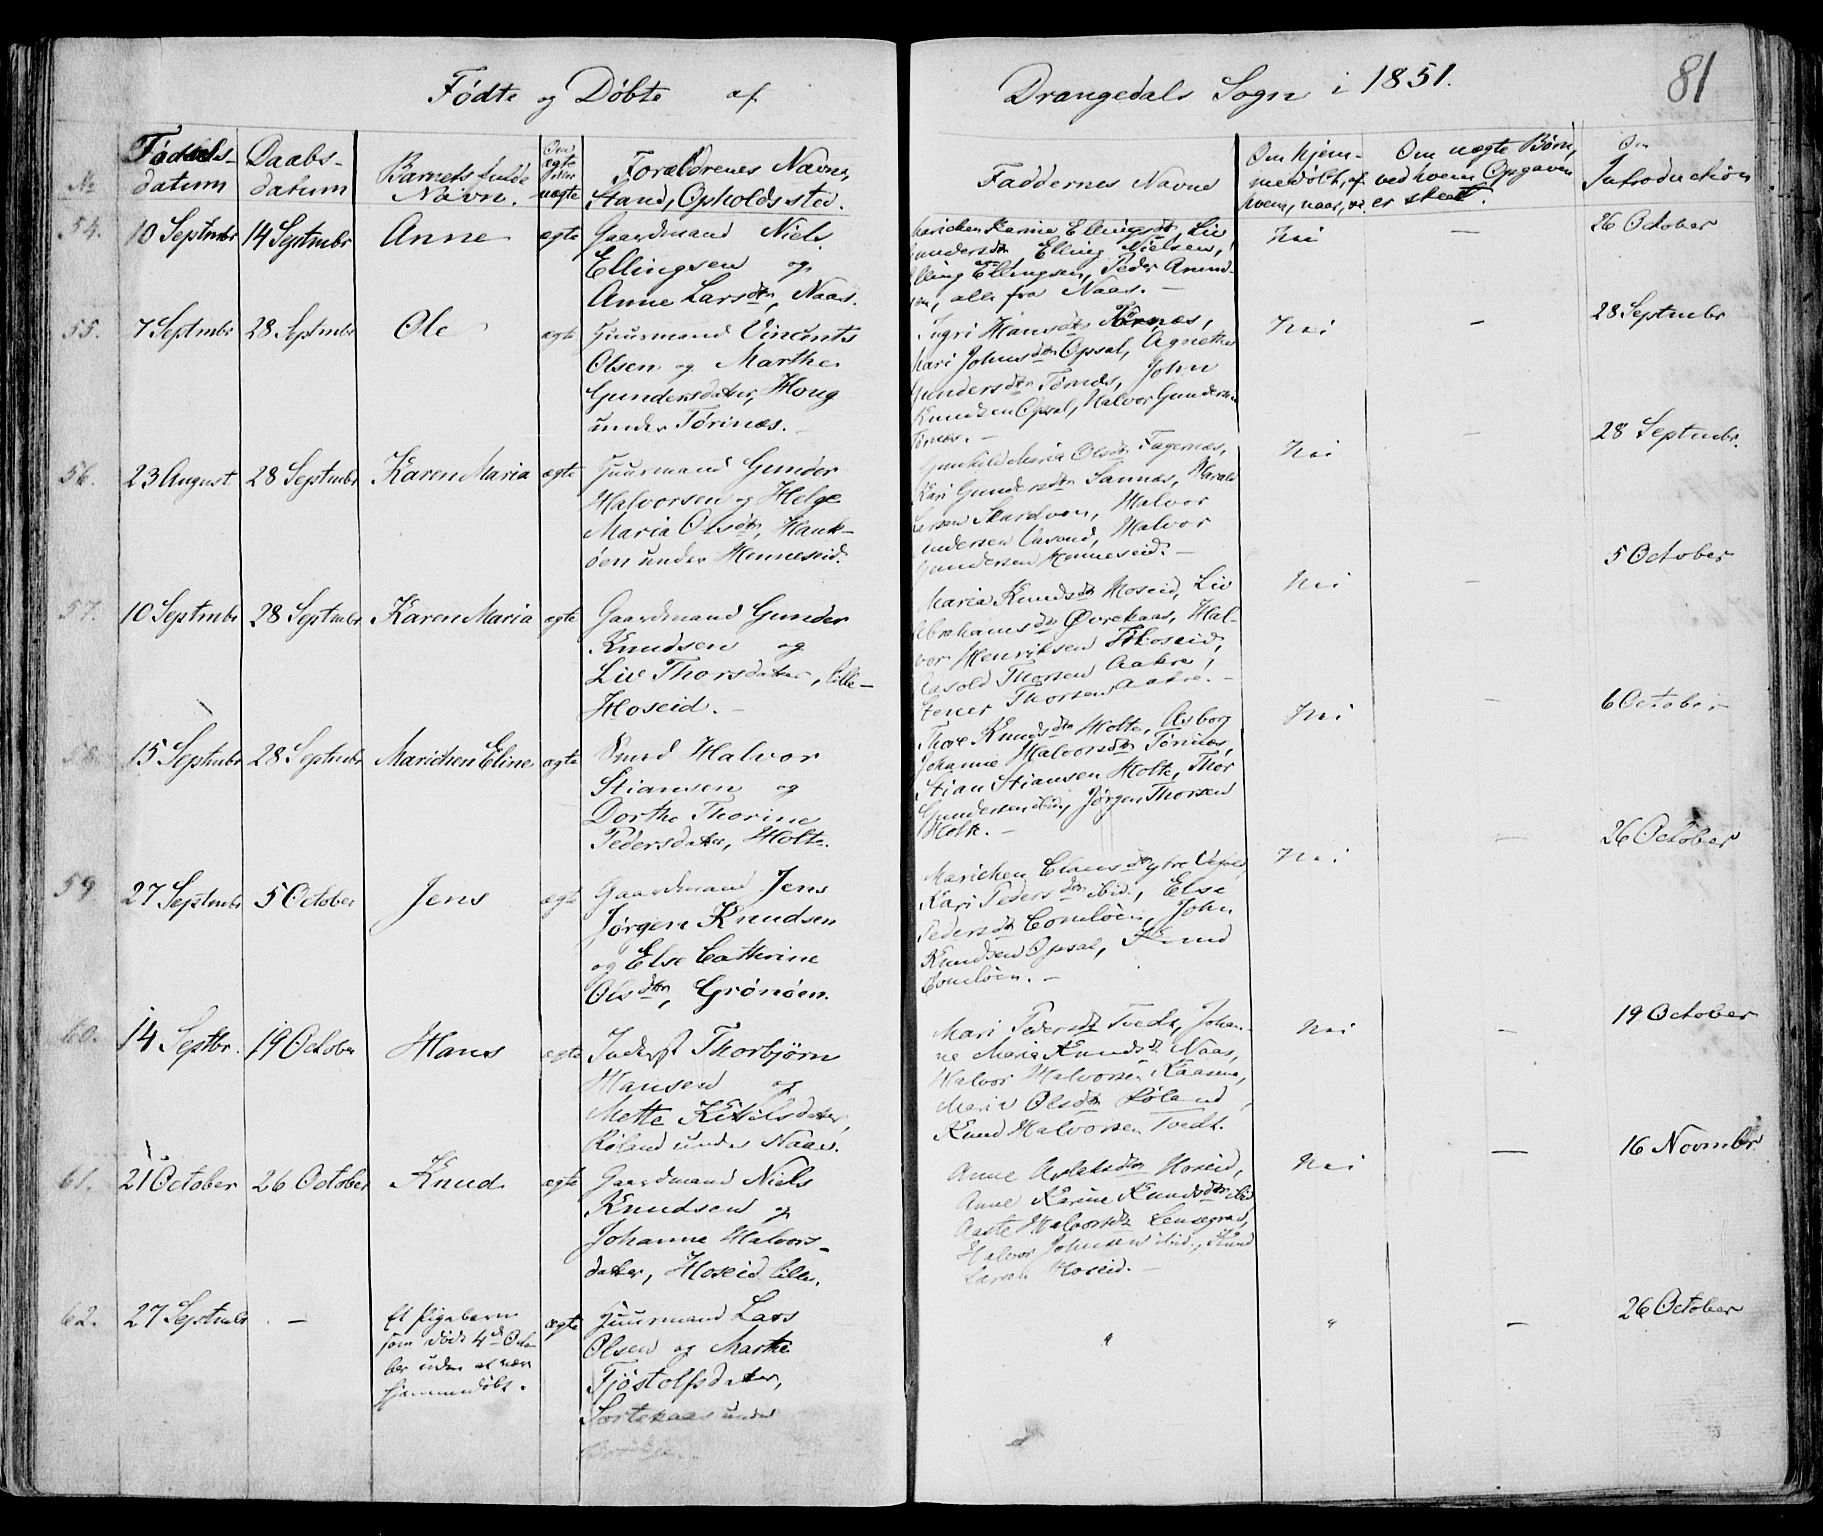 Fødte og Døbte af
Drangedals Sogn i 1851.
81
№
Fødsels-
datum
Daabs-
datum
Barnets fulde
Navn.
Om
ægte
eller
uægte
Forældrenes Navne,
Stand, Opholdssted.
Faddernes Navne
Om hjem-
medøbt, af
hvem, naar,
Om uægte Børn,
ved hvem Opgaven
er skeet.
Om
Introduction
54.
10 Septmbr
14 Septmbr
Anne
ægte
Gaardmand Niels
Ellingsen og
Anne Larsdtr, Naas.
Marichen Karine Ellingsdtr, Liv
Elling Nielsen,
Elling Ellingsen, Peder Amund-
sen, alle fra Naas. -
Nei
-
26 October
55.
7 Septmbr
28 Septmbr
Ole
ægte
Huusmand Vincents
Olsen og Marthe
Gundersdater, Houg
under Tørinæs.
Ingri Hansdtr Tørnæs,
Mari Johnsdtr Opsal, Agnethe
Gundersdtr Tørnæs, John
Knudsen Opsal, Halvor Gundersen
Tørnæs. -
Nei
-
28 Septmbr
56.
23 August
28 Septmbr
Karen Maria
ægte
Huusmand Gunder
Halvorsen og Helge
Maria Olsdtr, Hauk-
øen under Henneseid.
Gunhild Maria Olsdtr Fagernæs,
Kari Gundersdtr Sannæs, Harald
Larsen Halvor
Andersen Halvor
Gundersen Henneseid. -
Nei
-
28 Septmbr
57.
10 Septmbr
28 Septmbr
Karen Maria
ægte
Gaardmand Gunder
Knudsen og
Liv Thorsdater, lille-
Hoseid. -
Maria Knudsdtr Hoseid, Liv
Abrahamsdtr Øvrekaas, Hal-
vor Henriksen Hoseid,
Aasold Thorsen Aakre,
Stener Thorsen Aakre. -
Nei
-
5 October
58.
15 Septmbr
28 Septmbr
Marichen Eline
ægte
Smed Halvor
Stiansen og
Dorthe Thorine
Pedersdater, Holte.
Thore Knudsdtr Holte, Asborg
Johanne Halvorsdtr Tørinæs,
Stian Stiansen Holte, Thor
Gundersen ibid, Jørgen Thorsen
Holte. -
Nei
-
6 October
59
27 Septmbr
5 October
Jens
ægte
Gaardmand Jens
Jørgen Knudsen
og Else Cathrine
Olsdtr, Grønøen.
Marichen Clausdtr ytre
Kari Pedersdtr ibid., Else
Pedersdtr John
Knudsen Opsal, Knud
Nei
-
26 October
60.
14 Septbr.
19 October
Hans
ægte
Inderst Thorbjørn
Hansen og
Mette Kittilsdater,
Røland under Naas.
Mari Pedersdtr Tvedt, Johan-
ne Maria Knudsdtr Naas,
Halvor Halvorsen
Maria Olsdtr Røland,
Knud Halvorsen Tvedt.
Nei
-
19 October
61.
21 October
26 October
Knud
ægte
Gaardmand Niels
Knudsen og
Johanne Halvors-
dater, Hoseid lille.
Anne Aslaksdtr Hoseid,
Anne Karine Knudsdtr ibid
Aaste Halvorsdtr
Halvor Johnsen ibid., Knud
Larsen Hoseid. -
Nei
-
16 Novmbr
62.
27 Septmbr
-
Et Pigebarn
som døde 4de Octo-
ber uden at være
hjemmedøbt.
ægte
Huusmand Lars
Olsen og Marthe
Tjøstolfsdater,
Sortekaas under
"
"
-
26 October